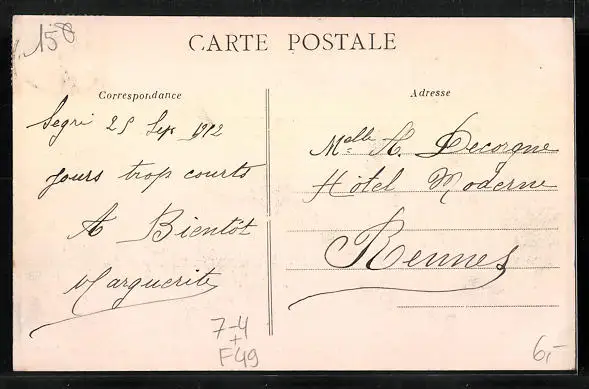 158
CARTE POSTALE
Correspondance
Adresse
Segré 25 Sep 1912
Jours trop courts
A Bientôt
Marguerite
Melle H. Decorgne
Hôtel Moderne
Rennes
7-4
+
F49
6,-